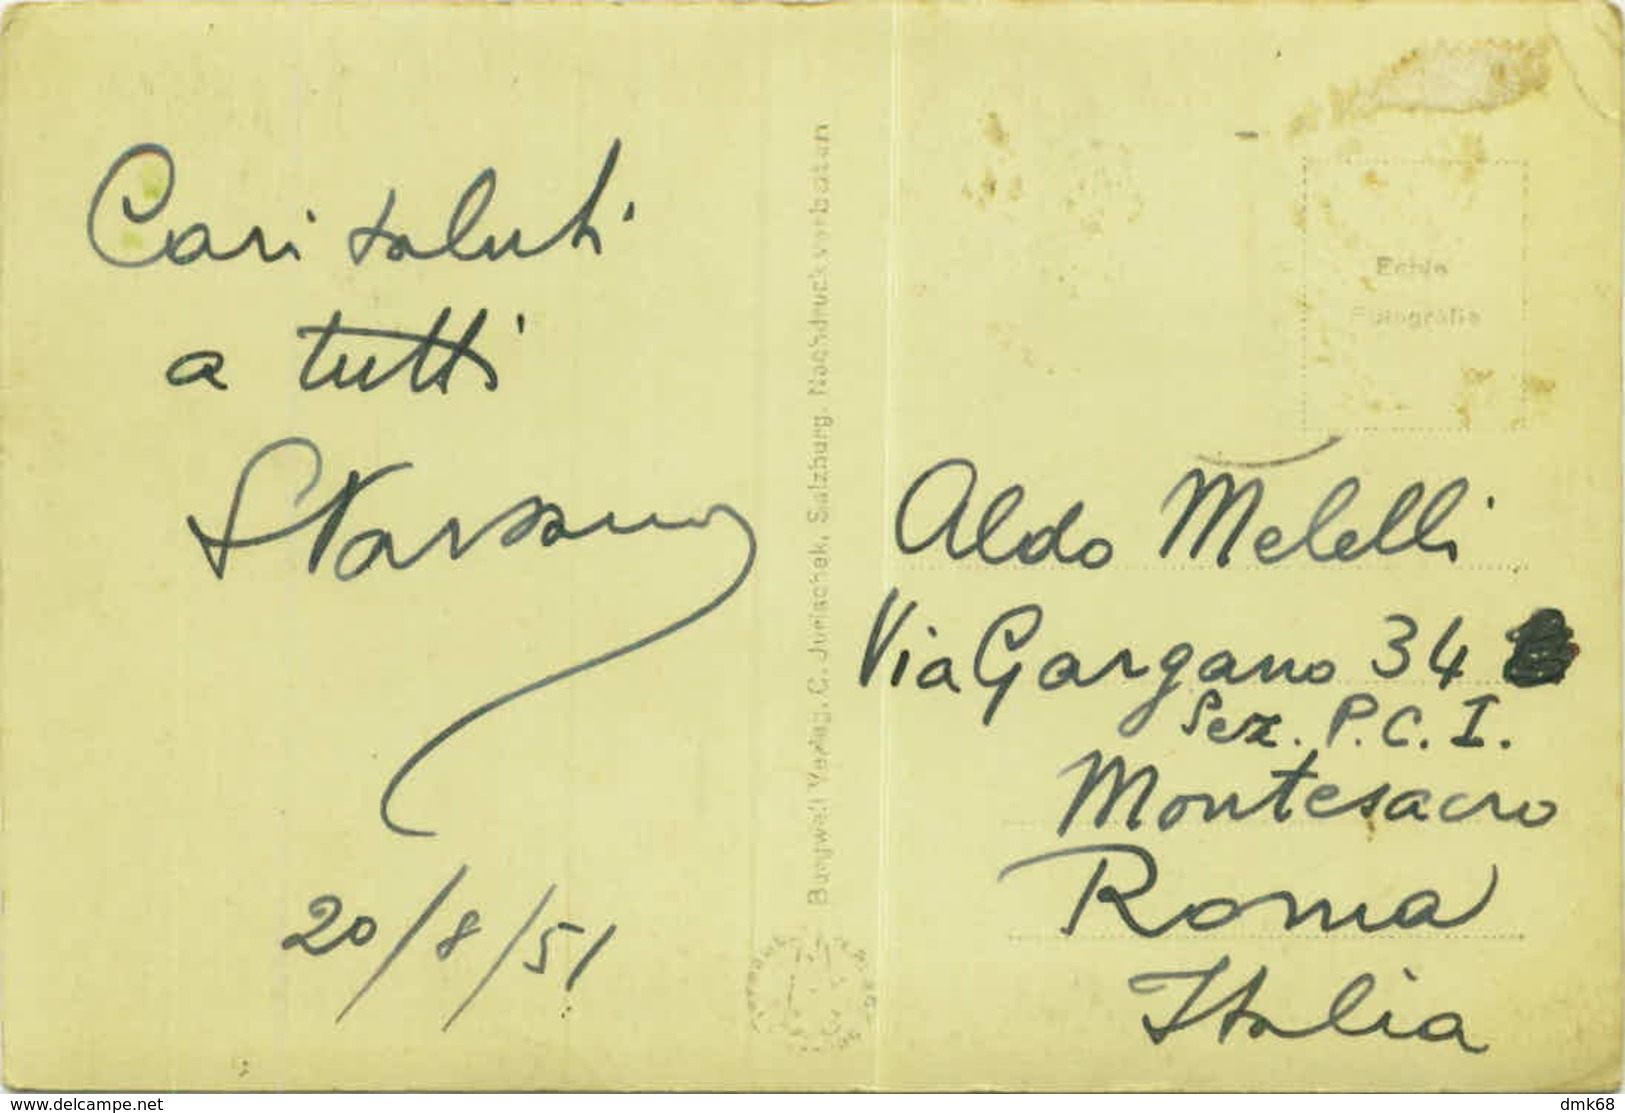 Cari saluti
a tutti
20/8/51
Burgwall Verlag, C. Jurischek, Salzburg. Nachdruck verboten
Echte
Fotografie
Aldo Melelli
Via Gargano 34
Sez. P.C.I.
Montesacro
Roma
Italia
www.delcampe.net
dmk68